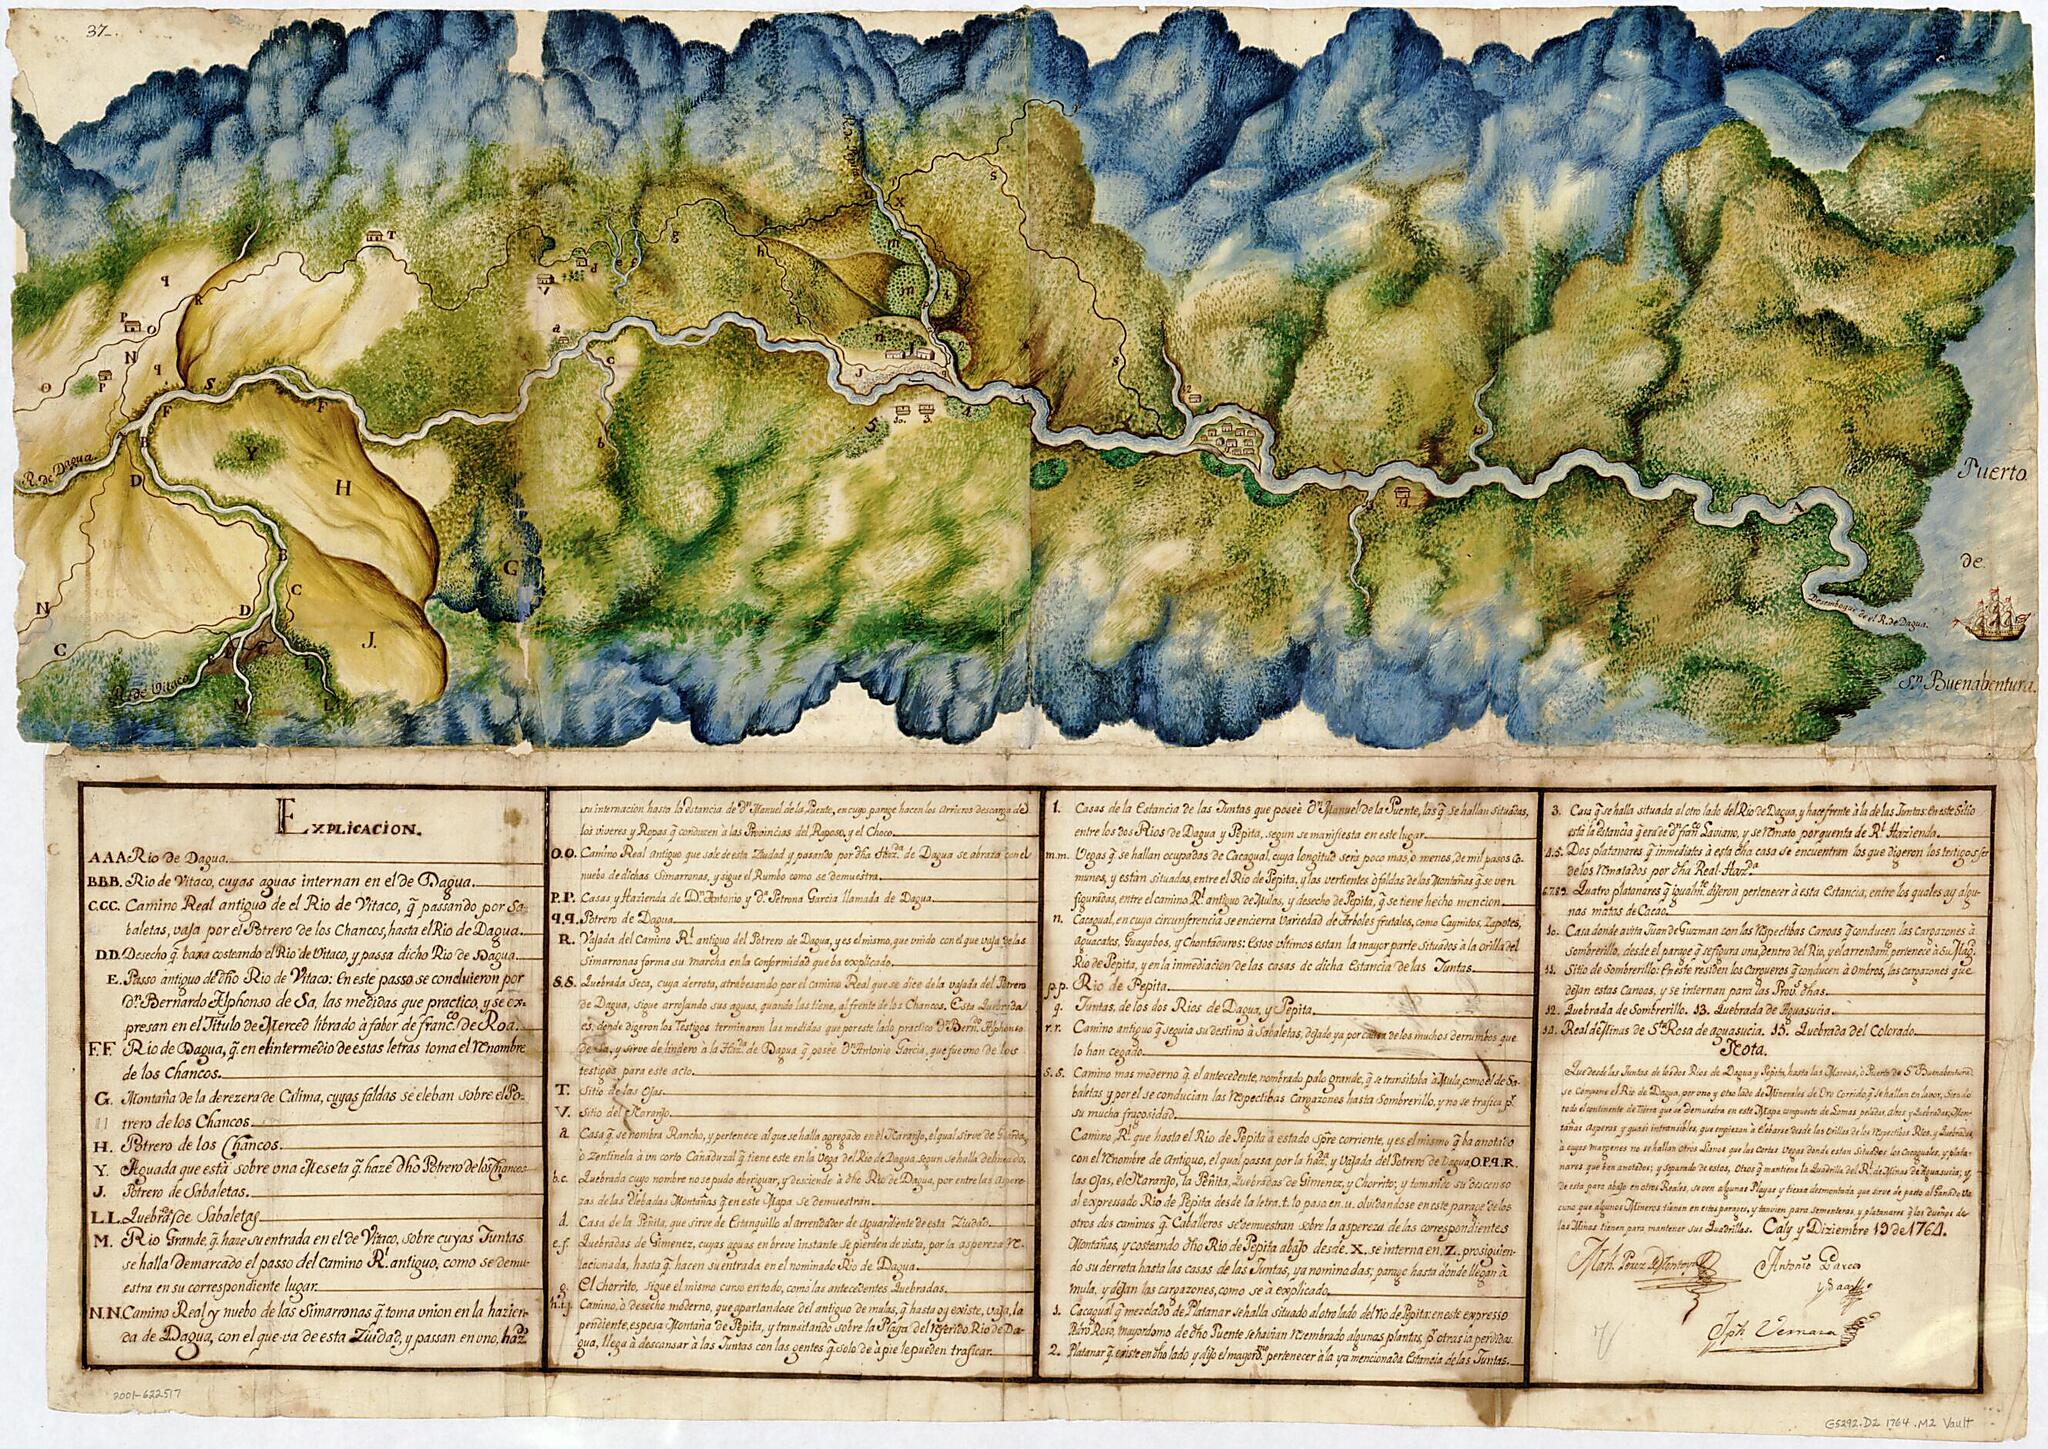 37.
R. de Dagua.
R. de Vitaco
Puerto
de
Sn. Buenabentura.
Desemboque de el R. de Dagua.
EXPLICACION.
AAA. Rio de Dagua.
BBB. Rio de Vitaco, cuyas aguas internan en el de Dagua.
C.C.C. Camino Real antiguo de el Rio de Vitaco, q̃ passando por Sa-
baletas, vaja por el Potrero de los Chancos, hasta el Rio de Dagua.
DD. Desecho q̃ baxa costeando el Rio de Vitaco, y passa dicho Rio de Dagua.
E. Passo antiguo de dho Rio de Vitaco: En este passo se concluieron por
dn. Bernardo Alphonso de Sa, las medidas que practico, y se ex-
presan en el Titulo de Merced librado à fabor de franco. de Roa.
F.F. Rio de Dagua, q̃ en el intermedio de estas letras toma el renombre
de los Chancos.
G. Montaña de la derezera de Calima, cuyas faldas se eleban sobre el Po-
trero de los Chancos.
H. Potrero de los Chancos.
Y. Aguada que està sobre una Meseta q̃ haze dho Potrero de los Chancos
J. Potrero de Sabaletas.
L.L. Quebrads. de Sabaletas
M. Rio Grande, q̃ haze su entrada en el de Vitaco, sobre cuyas Juntas
se halla demarcado el passo del camino Rl. antiguo, como se demu-
estra en su correspondiente lugar.
N.N. Camino Real y nuebo de las Simarronas q̃ toma union en la hazien-
da de Dagua, con el que va de esta Ziudad, y passan en uno, hazda
su internacion hasta la estancia de dn. Manuel de la Puente, en cuyo parage hacen los Arrieros descarga de
los viveres y Ropas q̃ conducen à las Provincias del Raposo, y el Choco.
O.O. Camino Real antiguo que sale de esta Ziudad y pasando por dha Hazda. de Dagua se abraza con el
nuebo de dichas Simarronas, y sigue el Rumbo como se demuestra.
P.P. Casas y Hazienda de Dn. Antonio y da. Petrona Garcia llamada de Dagua.
q.q. Potrero de Dagua
R. Vajada del Camino Rl. antiguo del Potrero de Dagua, y es el mismo, que unido con el que vaja de las
Simarronas forma su marcha en la conformidad que ba explicado.
S.S. Quebrada Seca, cuya derrota, atrabesando por el camino Real que se dice de la vajada del Potrero
de Dagua, sigue arrojando sus aguas, quando las tiene, al frente de los Chancos. Esta Quebrada
es, donde digeron los Testigos terminaron las medidas que por este lado practico dn. Berno. Alphonso
de Sa, y sirve de lindero à la Hazda. de Dagua q̃ posee dn. Antonio Garcia, que fue uno de los
testigos para este acto.
T. Sitio de las Ojas.
V. Sitio del Naranjo.
a. Casa q̃ se nombra Rancho, y pertenece al que se halla agregado en el Naranjo, el qual sirve de Guarda,
ò Zentinela à un corto Cañaduzal q̃ tiene este en la Vega del Rio de Dagua, segun se halla delineado.
b.c. Quebrada cuyo nombre no se pudo aberiguar, y desciende à dho Rio de Dagua, por entre las aspere-
zas de las elebadas Montañas q̃ en este Mapa se demuestran.
d. Casa de la Peñita, que sirve de Estanquillo al arrendador de aguardiente de esta Ziudad.
e.f. Quebradas de Gimenez, cuyas aguas en breve instante se pierden de vista, por la aspereza re-
lacionada, hasta q̃ hacen su entrada en el nominado Rio de Dagua.
g. El chorrito, sigue el mismo curso en todo, como las antecedentes Quebradas.
h.i.j. Camino, ò desecho moderno, que apartandose del antiguo de mulas, q̃ hasta oy existe, vaja, la
pendiente, espesa Montaña de Pepita, y transitando sobre la Playa del referido Rio de Da-
gua, llega à descansar à las Juntas con las gentes q̃ solo de à pie le pueden traficar.
1. Casas de la Estancia de las Juntas que posee dn. Manuel de la Puente, las q̃ se hallan situadas,
entre los dos Rios de Dagua y Pepita, segun se manifiesta en este lugar.
m.m. Vegas q̃ se hallan ocupadas de Cacagual, cuya longitud serà poco mas, ò menos, de mil pasos co-
munes, y estàn situadas, entre el Rio de Pepita, y las vertientes ò faldas de las Montañas q̃ se ven
figuradas, entre el camino Rl. antiguo de Mulas, y desecho de Pepita, q̃ se tiene hecho mencion.
n. Cacagual, en cuya circunferencia se encierra variedad de Arboles frutales, como Caymitos, Zapotes,
aguacates, Guayabos, y Chontaduros: Estos ultimos estan la mayor parte situados à la orilla del
Rio de Pepita, y en la inmediacion de las casas de dicha Estancia de las Juntas.
p.p. Rio de Pepita
q. Juntas, de los dos Rios de Dagua y Pepita
r.r. Camino antiguo q̃ seguia su destino à Sabaletas, dejado ya por causa de los muchos derrumbos que
lo han cegado.
s.s. Camino mas moderno q̃ el antecedente, nombrado palo grande, q̃ se transitaba à Mula, como el de Sa-
baletas y por el se conducian las respectibas Cargazones hasta Sombrerillo, y no se trafica pr.
su mucha fragosidad.
Camino, Rl. que hasta el Rio de Pepita à estado spre. corriente, y es el mismo q̃ ba anotado
con el renombre de Antiguo, el qual passa por la hazda. y vajada del Potrero de Dagua, O.P.q.R.
las Ojas, el Naranjo, la Peñita, Quebradas de Gimenez, y Chorrito; y tomando su descenso
al expressado Rio de Pepita desde la letra, t. lo pasa en, u. olvidandose en este parage de los
otros dos caminos q̃ Caballeros se demuestran sobre la aspereza de las correspondientes
Montañas, y costeando dho Rio de Pepita abajo desde. X. se interna en. Z. prosiguien-
do su derrota hasta las casas de las Juntas, ya nominadas; parage hasta donde llegan à
mula, y dejan las cargazones, como se à explicado.
1. Cacagual q̃ mezclado de Platanar se halla situado al otro lado del Rio de Pepita: en este expresso
Pedro Roso, mayordomo de dho Puente se havian renombrado algunas plantas, pr. otras ia perdidas.
2. Platanar q̃ existe en dho lado y dijo el mayordmo. pertenecer à la ya mencionada Estancia de las Juntas.
3. Casa q̃ se halla situada al otro lado del Rio de Dagua, y hace frente à la de las Juntas: En este Sitio
està la Estancia q̃ era de dn. franco. Laviano, y se remato por quenta de Rl. Hazienda.
4.5. Dos platanares q̃ inmediatos à esta dha casa se encuentran los que digeron los testigos ser
de los rematados por dha Real Hazda.
6.7.8.9. Quatro platanares q̃ igualmte. dijeron pertenecer à esta Estancia, entre los quales ay algu-
nas matas de Cacao.
10. Casa donde avita Juan de Guzman con las respectibas Canoas q̃ conducen las Cargazones à
Sombrerillo, desde el parage q̃ se figura una, dentro del Rio, y el arrendamto. pertenece à Su Magd.
11. Sitio de Sombrerillo: En este residen los Cargueros q̃ conducen à Ombros, las cargazones que
dejan estas Canoas, y se internan para las Provs. dhas.
12. Quebrada de Sombrerillo. 13. Quebrada de Aguasucia.
14. Real de Minas de Sta. Rosa de aguasucia. 15. Quebrada del Colorado.
Nota.
Que desde las Juntas de los dos Rios de Dagua y Pepita, hasta las Mareas, ò Puerto de Sn. Buenabentura
se compone el Rio de Dagua, por uno y otro lado de Minerales de Oro Corrido, q̃ se hallan en labor, siendo
todo el continente de tierra que se demuestra en este Mapa compuesto de Lomas peladas, altas y Quebradas; Mon-
tañas Asperas y quasi intransibles, que empiezan à elebarse desde las Orillas de los respectibos Rios, y Quebradas,
à cuyas margenes no se hallan otros Llanos que las cortas Vegas donde estan Situados los Cacaguales, y plata-
nares que ban anotados; y separando de estos, Otros q̃ mantiene la Quadrilla del Rl. de Minas de Aguasucia; y,
de esta para abajo en otros Reales, se ven algunas Playas y tierra desmontada que sirve de pasto al Ganado va-
cuno que algunos Mineros tienen en estos parages, y tambien para sementeras, y platanares q̃ los dueños de
las Minas tienen para mantener sus Quadrillas. Caly y Diziembre 19 de 1764.
Man. Perez de Montoya
Antonio Garcia
Jph. Vernaza
2001-622517
G5292.D2 1764 .M2 Vault